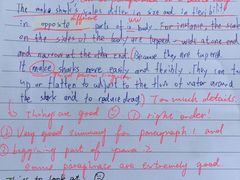 The mako shark's scales differ in size and in flexibility
different
in opposite parts of a body. For instance, the scales
on the sides of the body are tapered - wide at one end
and narrow at the other end. Because they are tapered
It make sharks more easily and flexibly. They can turn
up or flatten to adjust to the flow of water around
the shark and to reduce drag) Too much details.
Things are good ① right order!
① Very good summary for paragraph 1 and
② beggining part of para 2
Some paraphrase are extremely good
Things to look at